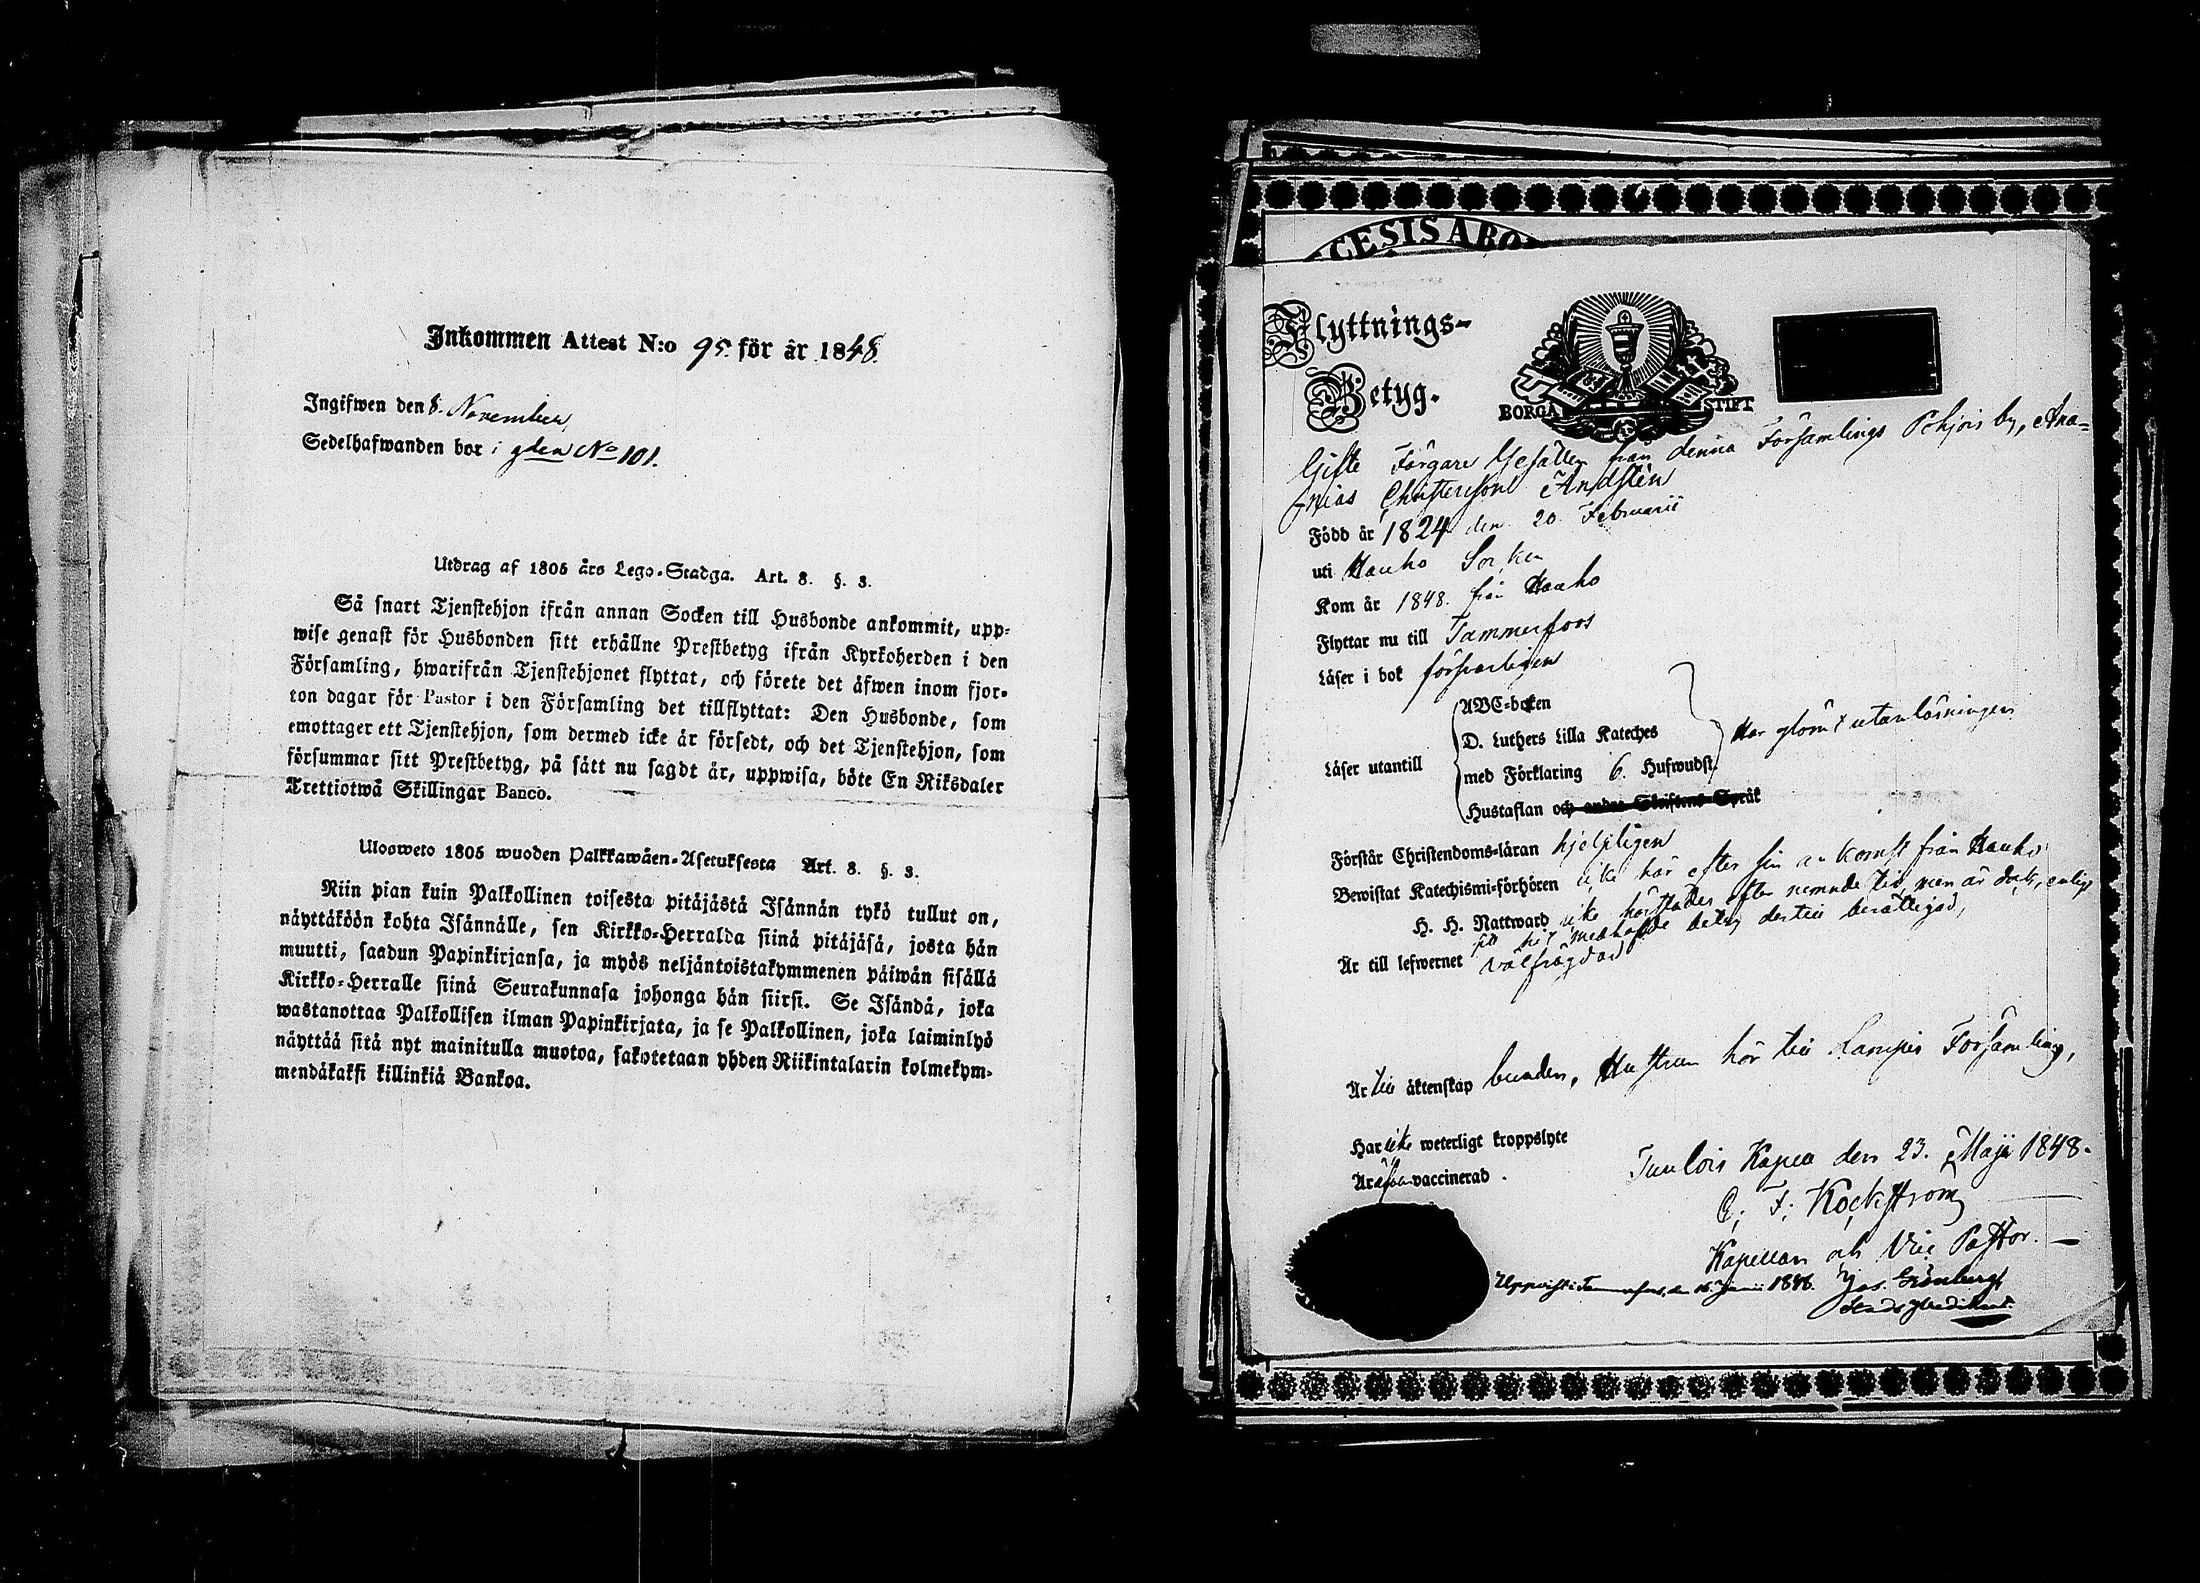 Inkommen Attest N:o 95. för år 1848.
Ingifwen den 8. November
Sedelhafwanden bor i gden No 101.
Utdrag af 1805 års Lego-Stadga. Art. 8. §. 3.
Så snart Tjenstehjon ifrån annan Socken till Husbonde ankommit, upp-
wise genast för Husbonden sitt erhållne Prestbetyg ifrån Kyrkoherden i den
Församling, hwarifrån Tjenstehjonet flyttat, och förete det äfwen inom fjor-
ton dagar för Pastor i den Församling det tillflyttat: Den Husbonde, som
emottager ett Tjenstehjon, som dermed icke är försedt, och det Tjenstehjon, som
försummar sitt Prestbetyg, på sätt nu sagdt är, uppwisa, böte En Riksdaler
Trettiotwå Skillingar Banco.
Ulosweto 1805 wuoden Palkkawäen-Asetuksesta Art. 8. §. 3.
Niin pian kuin Palkollinen toisesta pitäjästä Isännän tykö tullut on,
näyttäköön kohta Isännälle, sen Kirkko-Herralda siinä pitäjäsä, josta hän
muutti, saadun Papinkirjansa, ja myös neljäntoistakymmenen päiwän sisällä
Kirkko-Herralle siinä Seurakunnasa johonga hän siirsi. Se Isändä, joka
wastanottaa Palkollisen ilman Papinkirjata, ja se Palkollinen, joka laiminlyö
näyttää sitä nyt mainitulla muotoa, sakotetaan yhden Riikintalarin kolmekym-
mendäkaksi killinkiä Bankoa.
CESIS ABO
Flyttnings-
Betyg.
BORGÅ STIFT
Gifte Färgare Gesällen från denna Församlings Pohjois by, Ana-
nias Christersson Andstén
Född år 1824 den 20 Februarii
uti Hauho Socken
Kom år 1848. från Hauho
Flyttar nu till Tammerfors
Läser i bok försvarligen
ABC-boken
D. Luthers Lilla Kateches
Läser utantill med Förklaring 6. Hufwudst. Har glömt utanläsningen
Hustaflan och andra Skriftens Språk
Förstår Christendoms-läran hjelpligen
Bewistat Katechismi-förhören icke här efter sin ankomst från Hauho
H. H. Nattward icke härstädes efter nemnde tid, men är dock, enligt
sitt hit medhafde betyg dertill berättigad,
Är till lefwernet välfrägdad
Är till äktenskap bunden, Hustrun hör till Lampis Församling,
Har icke weterligt kroppslyte
Är äfwen vaccinerad.
Tuulois Kapell den 23. Maji 1848.
C. F. Kockström
Kapellan och Vice Pastor.
Uppvist i Tammerfors, den 16. Junii 1848. Jos. Grönberg
Stads predikant.